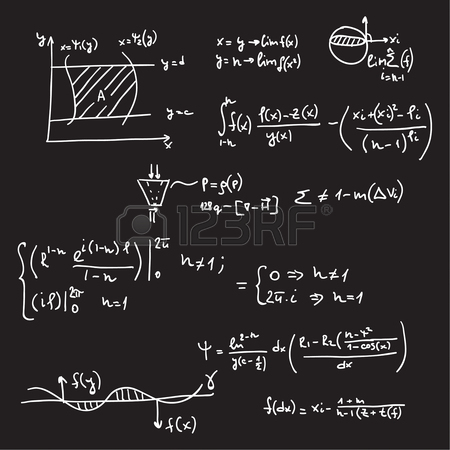 y x=Ψ₁(y) x=Ψ₂(y)
y=d
A
y=c
x
x=y → lim f(x)
y=n → lim f(x²)
xi
lim Σ(f)
i=n-1
n
∫ f(x) (f(x)-z(x))/y(x) - ((xi+(xi)²-li)/(n-1)
1-n
P=ρ(p)
Σ ≠ 1-m(ΔVi)
{(R¹⁻ⁿ e^(i(1-n)φ)/(1-n))|₀^2π n≠1;
(iφ)|₀^2π n=1
= {0 ⇒ n≠1
2π.i ⇒ n=1
123RF
Ψ = ln²⁻ⁿ/y(c-½) dx ((R₁-R₂(n-4²/1-cos(x))/dx)
f(y) γ
f(x)
f(dx) = xi - (1+n)/(n-1(z+z(f))